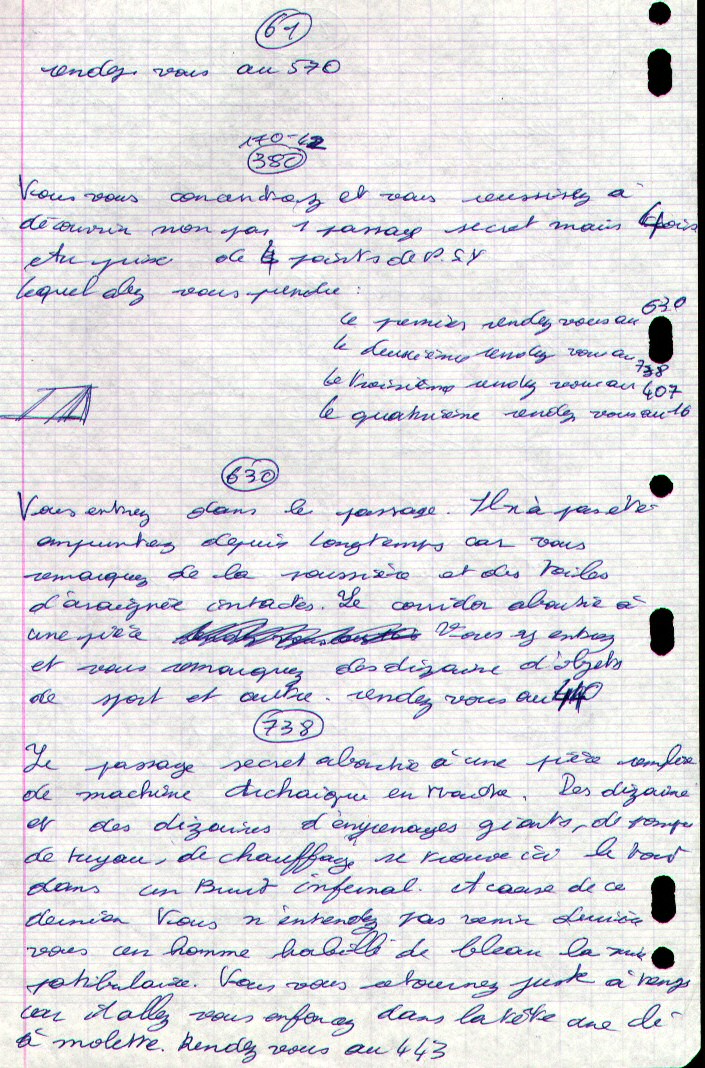 61
rendez vous au 570
170-42
380
Vous vous concentrez et vous reussissez à
découvrir non pas 1 passage secret mais 4
Au prix de 4 points de P.SY
lequel allez vous prendre :
le premier rendez vous au 630
le deuxième rendez vous au 738
le troisième rendez vous au 407
le quatrième rendez vous au 16
630
Vous entrez dans le passage. Il n'à pas été
empruntez depuis longtemps car vous
remarquez de la poussière et des toiles
d'araignée intactes. Le corridor aboutie à
une pièce Vous y entrez
et vous remarquez des dizaine d'objets
de sport et autre. rendez vous au 440
738
Le passage secret aboutie à une pièce remplie
de machine archaique en marche. Des dizaine
et des dizaines d'engrenages géants, de pompe
de tuyau, de chauffage se trouve ici le tout
dans un Bruit infernal. A cause de ce
dernier Vous n'entendez pas venir derrière
vous un homme habillé de bleau la mine
patibulaire. Vous vous retournez juste à temps
car il allez vous enfoncez dans la tête une clé
à molette. Rendez vous au 443